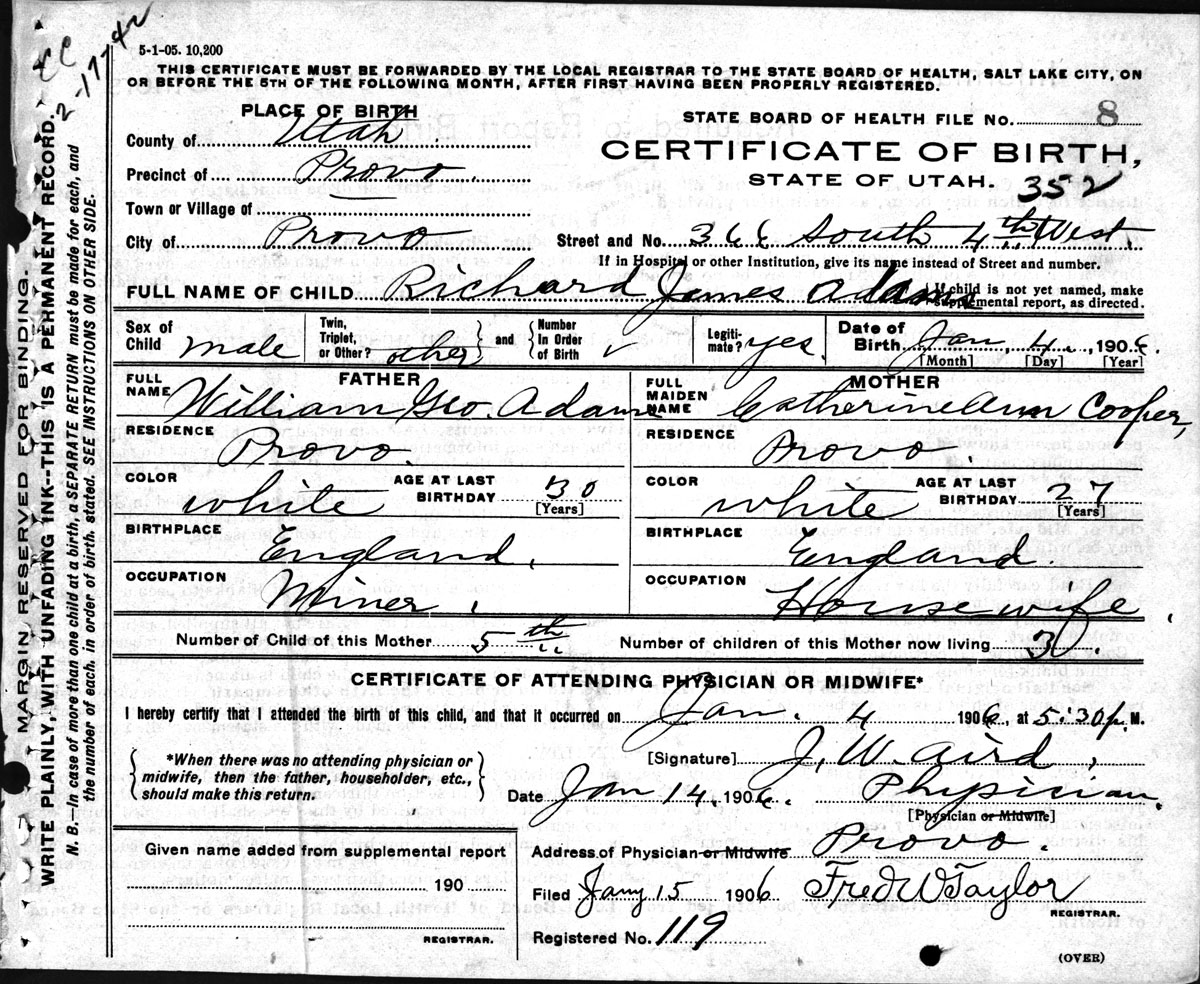 2-1774
5-1-05. 10,200
THIS CERTIFICATE MUST BE FORWARDED BY THE LOCAL REGISTRAR TO THE STATE BOARD OF HEALTH, SALT LAKE CITY, ON
OR BEFORE THE 5TH OF THE FOLLOWING MONTH, AFTER FIRST HAVING BEEN PROPERLY REGISTERED.
PLACE OF BIRTH
County of Utah
Precinct of Provo.
Town or Village of
City of Provo
STATE BOARD OF HEALTH FILE NO. 8
CERTIFICATE OF BIRTH,
STATE OF UTAH. 352
Street and No. 366 South 4th West.
If in Hospital or other Institution, give its name instead of Street and number.
FULL NAME OF CHILD Richard James Adams
If child is not yet named, make
supplemental report, as directed.
Sex of Child male
Twin, Triplet, or Other? other
and
Number In Order of Birth
Legitimate? yes.
Date of Birth Jan, 4, 1906.
[Month] [Day] [Year]
FATHER
FULL NAME William Geo. Adams
RESIDENCE Provo.
COLOR white
AGE AT LAST BIRTHDAY 30
[Years]
BIRTHPLACE England,
OCCUPATION Miner,
MOTHER
FULL MAIDEN NAME Catherine Ann Cooper
RESIDENCE Provo.
COLOR white
AGE AT LAST BIRTHDAY 27
[Years]
BIRTHPLACE England.
OCCUPATION Housewife,
Number of Child of this Mother 5th
Number of children of this Mother now living 3.
CERTIFICATE OF ATTENDING PHYSICIAN OR MIDWIFE*
I hereby certify that I attended the birth of this child, and that it occurred on Jan. 4 1906, at 5:30 p. M.
*When there was no attending physician or
midwife, then the father, householder, etc.,
should make this return.
[Signature] J. W. Aird,
Date Jan 14. 1906. Physician.
[Physician or Midwife]
Address of Physician or Midwife Provo.
Given name added from supplemental report
190
REGISTRAR.
Filed Jany 15 1906 Fred W Taylor
REGISTRAR.
Registered No. 119
(OVER)
MARGIN RESERVED FOR BINDING.
WRITE PLAINLY, WITH UNFADING INK--THIS IS A PERMANENT RECORD.
N. B.—In case of more than one child at a birth, a SEPARATE RETURN must be made for each, and
the number of each, in order of birth, stated. SEE INSTRUCTIONS ON OTHER SIDE.